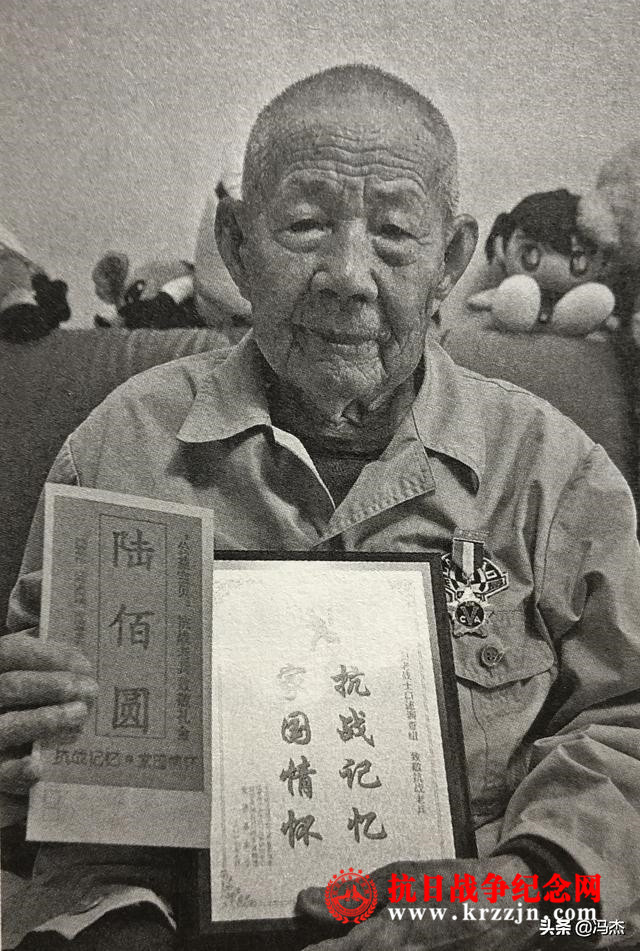 陆佰圆
抗战记忆 家国情怀
老战士口述调查组 致敬抗战老兵
抗战记忆
家国情怀
抗日战争纪念网
www.krzzjn.com
头条 @冯杰